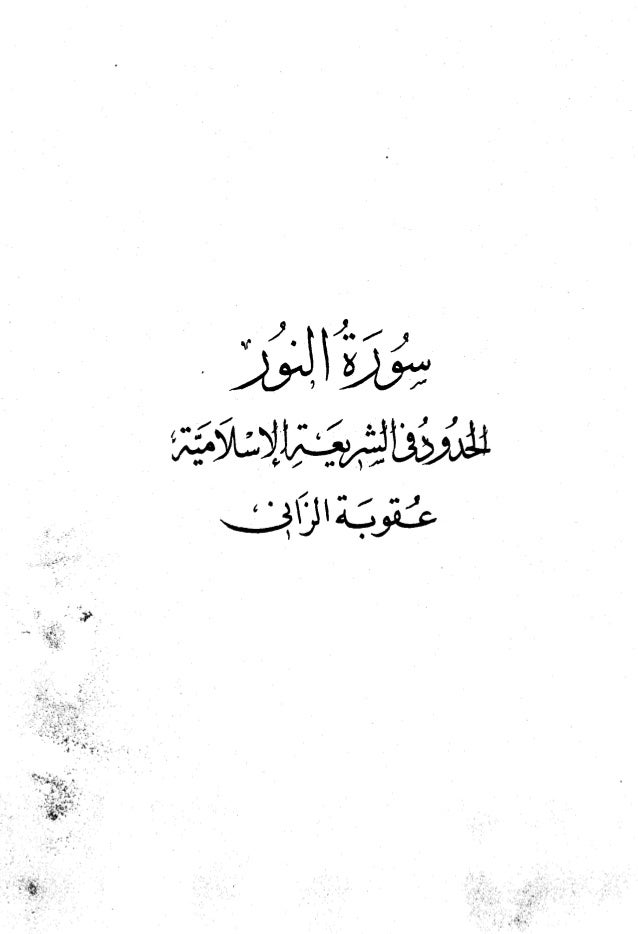 سُورَةُ النُّور
الحُدُودُ فى الشَّرِيعَةِ الإسْلَامِيَّةِ
عُقوبَة الزَّانى